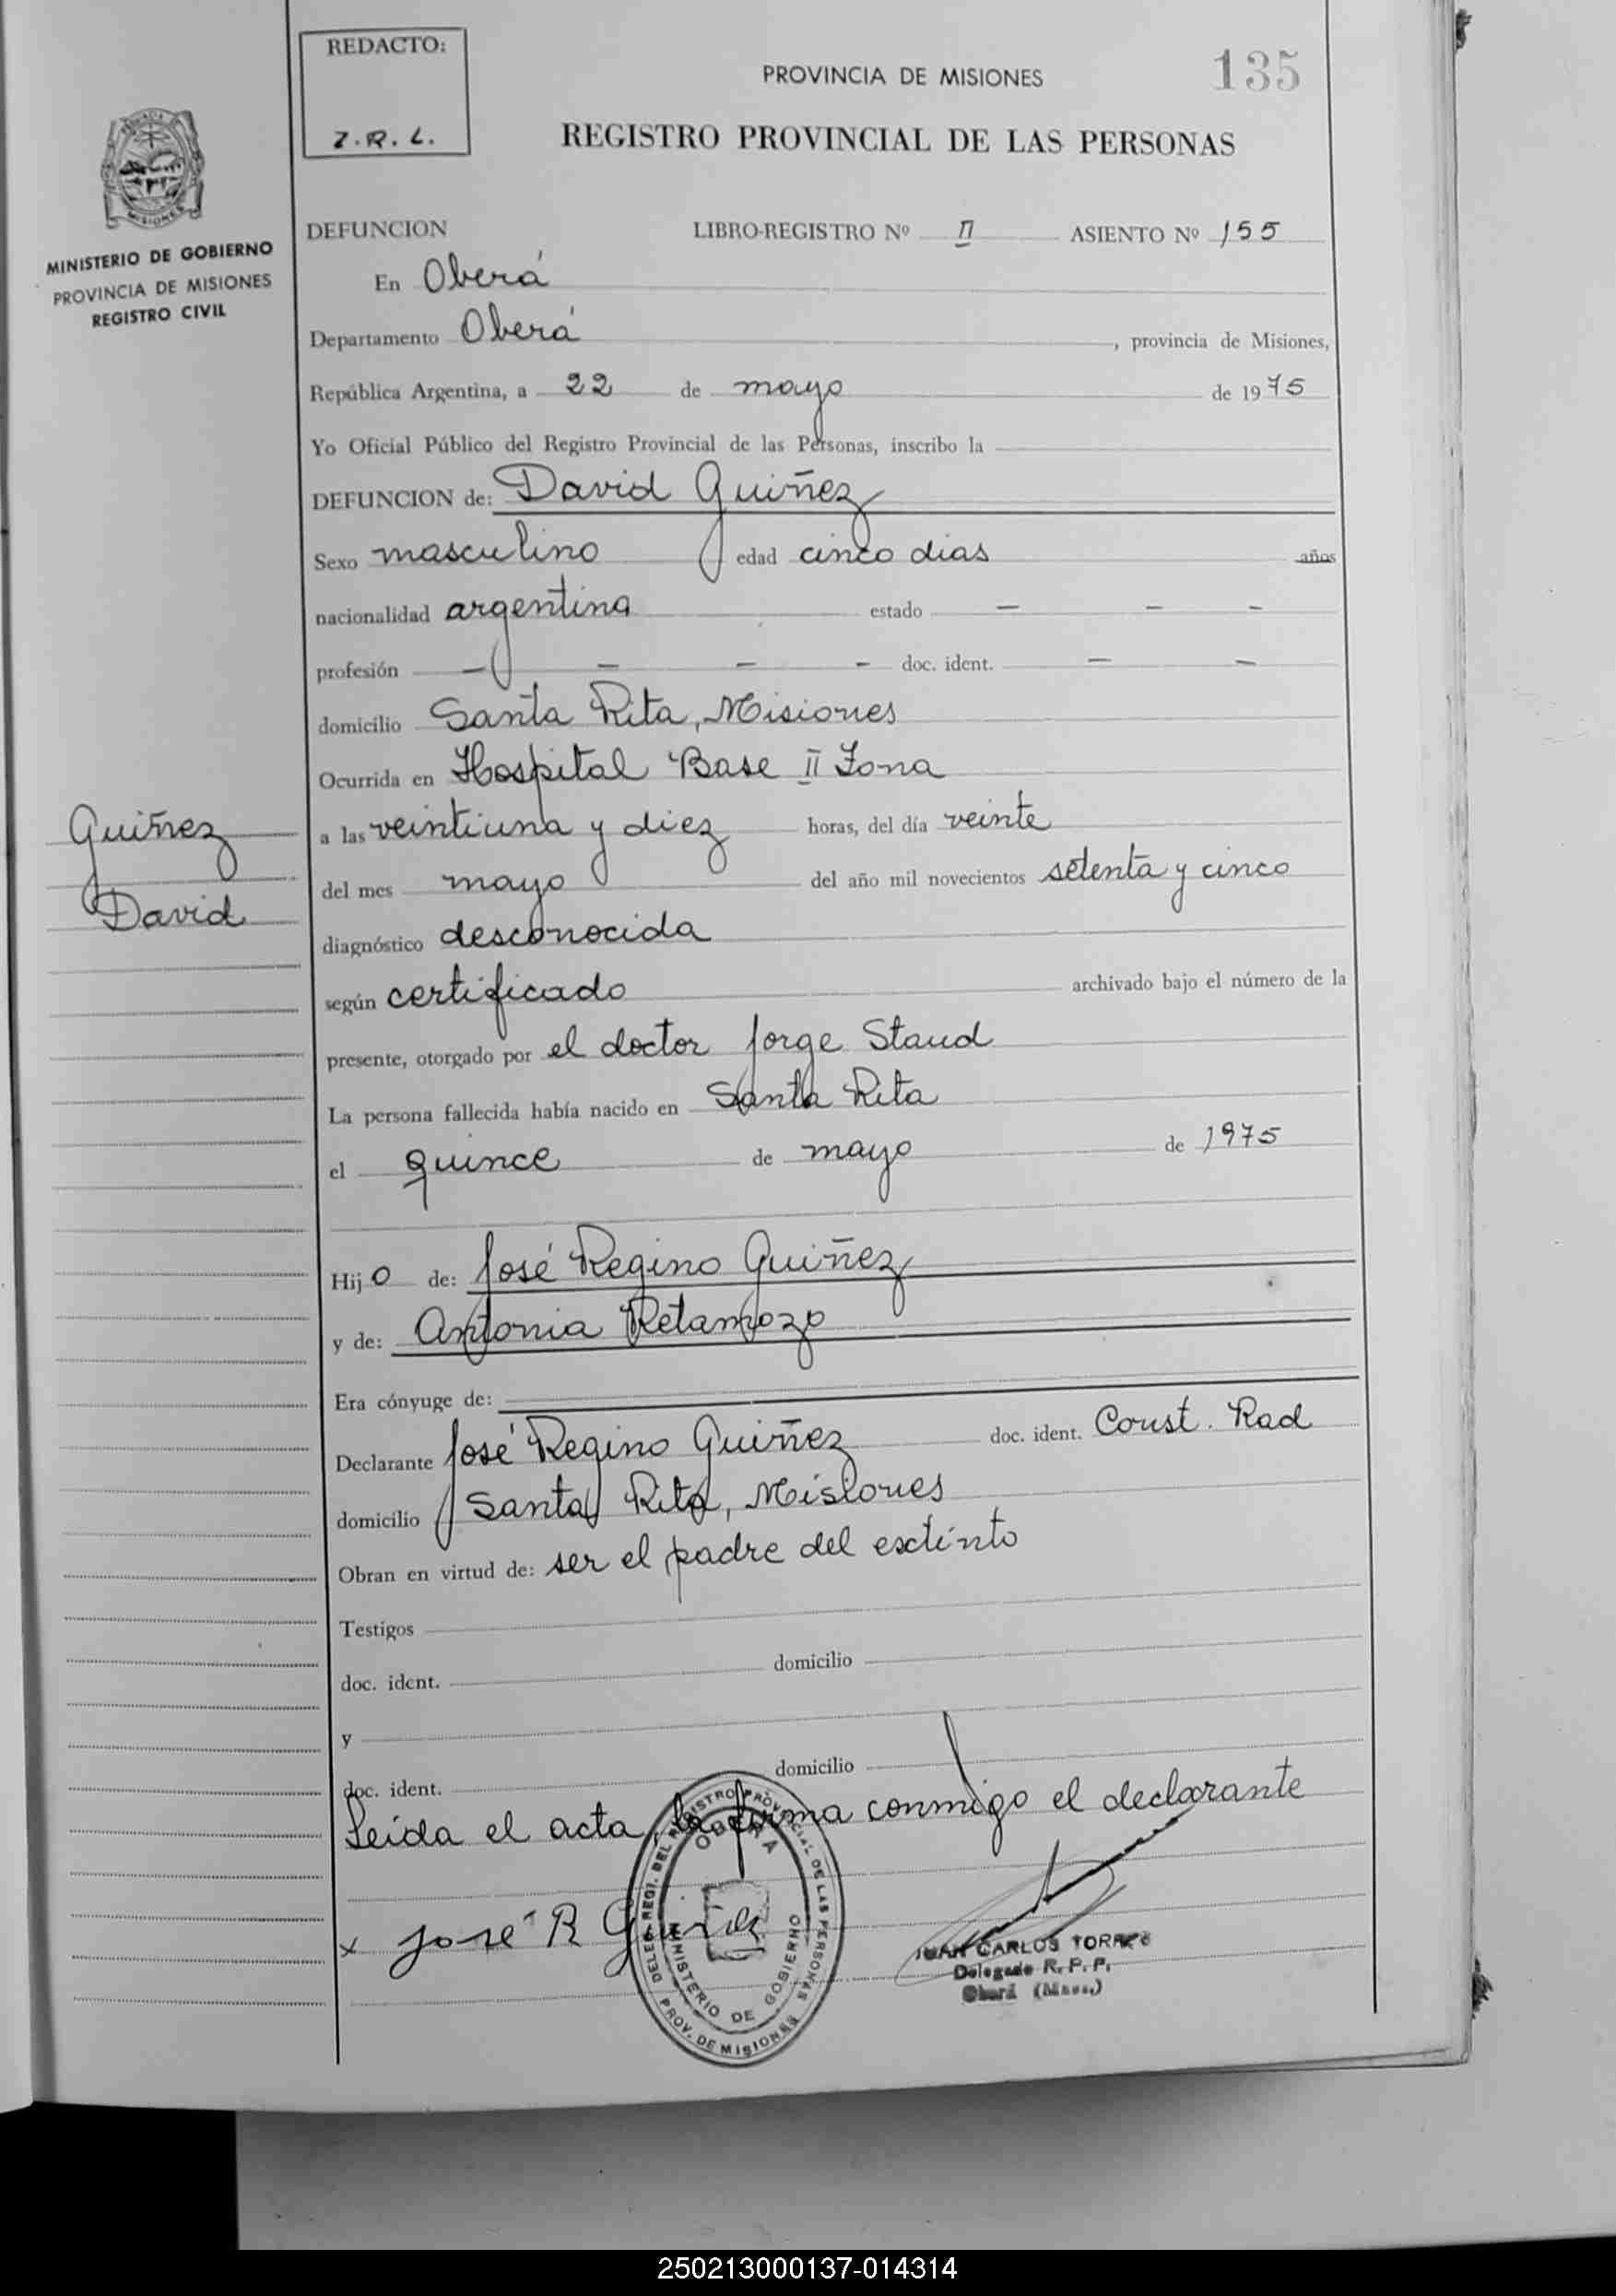 REDACTO:
Z.R.L.
PROVINCIA DE MISIONES
135
REGISTRO PROVINCIAL DE LAS PERSONAS
MISIONES
MINISTERIO DE GOBIERNO
PROVINCIA DE MISIONES
REGISTRO CIVIL
DEFUNCION LIBRO-REGISTRO Nº II ASIENTO Nº 155
En Oberá
Departamento Oberá, provincia de Misiones,
República Argentina, a 22 de mayo de 1975
Yo Oficial Público del Registro Provincial de las Personas, inscribo la
DEFUNCION de: David Guiñez
Sexo masculino edad cinco dias años
nacionalidad argentina estado — — —
profesión — — — — doc. ident. — —
domicilio Santa Rita, Misiones
Ocurrida en Hospital Base II Zona
Guiñez
David
a las veintiuna y diez horas, del día veinte
del mes mayo del año mil novecientos setenta y cinco
diagnóstico desconocida
según certificado archivado bajo el número de la
presente, otorgado por el doctor Jorge Staud
La persona fallecida había nacido en Santa Rita
el quince de mayo de 1975
Hijo de: José Regino Guiñez
y de: Antonia Retamozo
Era cónyuge de:
Declarante José Regino Guiñez doc. ident. Const. Rad
domicilio Santa Rita, Misiones
Obran en virtud de: ser el padre del extinto
Testigos
doc. ident. domicilio
y
doc. ident. domicilio
Leída el acta, la firma conmigo el declarante
x José R
DELEG. REGI. DEL REGISTRO PROVINCIAL DE LAS PERSONAS
OBERA
MINISTERIO DE GOBIERNO
PROV. DE MISIONES
JUAN CARLOS TORRES
Delegado R. P. P.
Oberá (Mnes.)
250213000137-014314